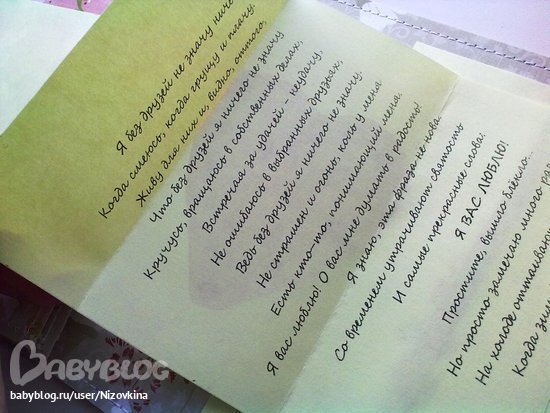 Я без друзей не значу ниче
Когда смеюсь, когда грущу и плачу.
Живу для них и, видно, оттого,
Что без друзей я ничего не значу
Кручусь, вращаюсь в собственных делах,
Встречая за удачей - неудачу,
Не ошибаюсь в выбранных друзьях,
Ведь без друзей я ничего не значу.
Не страшен и огонь, коль у меня
Есть кто-то, понимающий меня.
Я вас люблю! О вас мне думать в радость!
Я знаю, эта фраза не нова
Со временем утрачивают святость
И самые прекрасные слова.
Я ВАС ЛЮБЛЮ!
Простите, вышло блёкло.
Но просто замечаю много раз
На холоде оттаиваю
Когда зна
BABYBLOG
babyblog.ru/user/Nizovkina